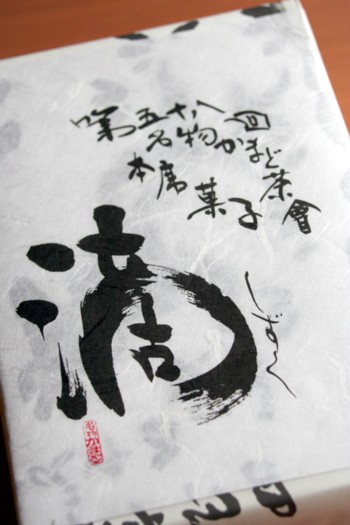 第五十八回
名物かまど茶會
本席菓子
滴
しずく
名物かまど